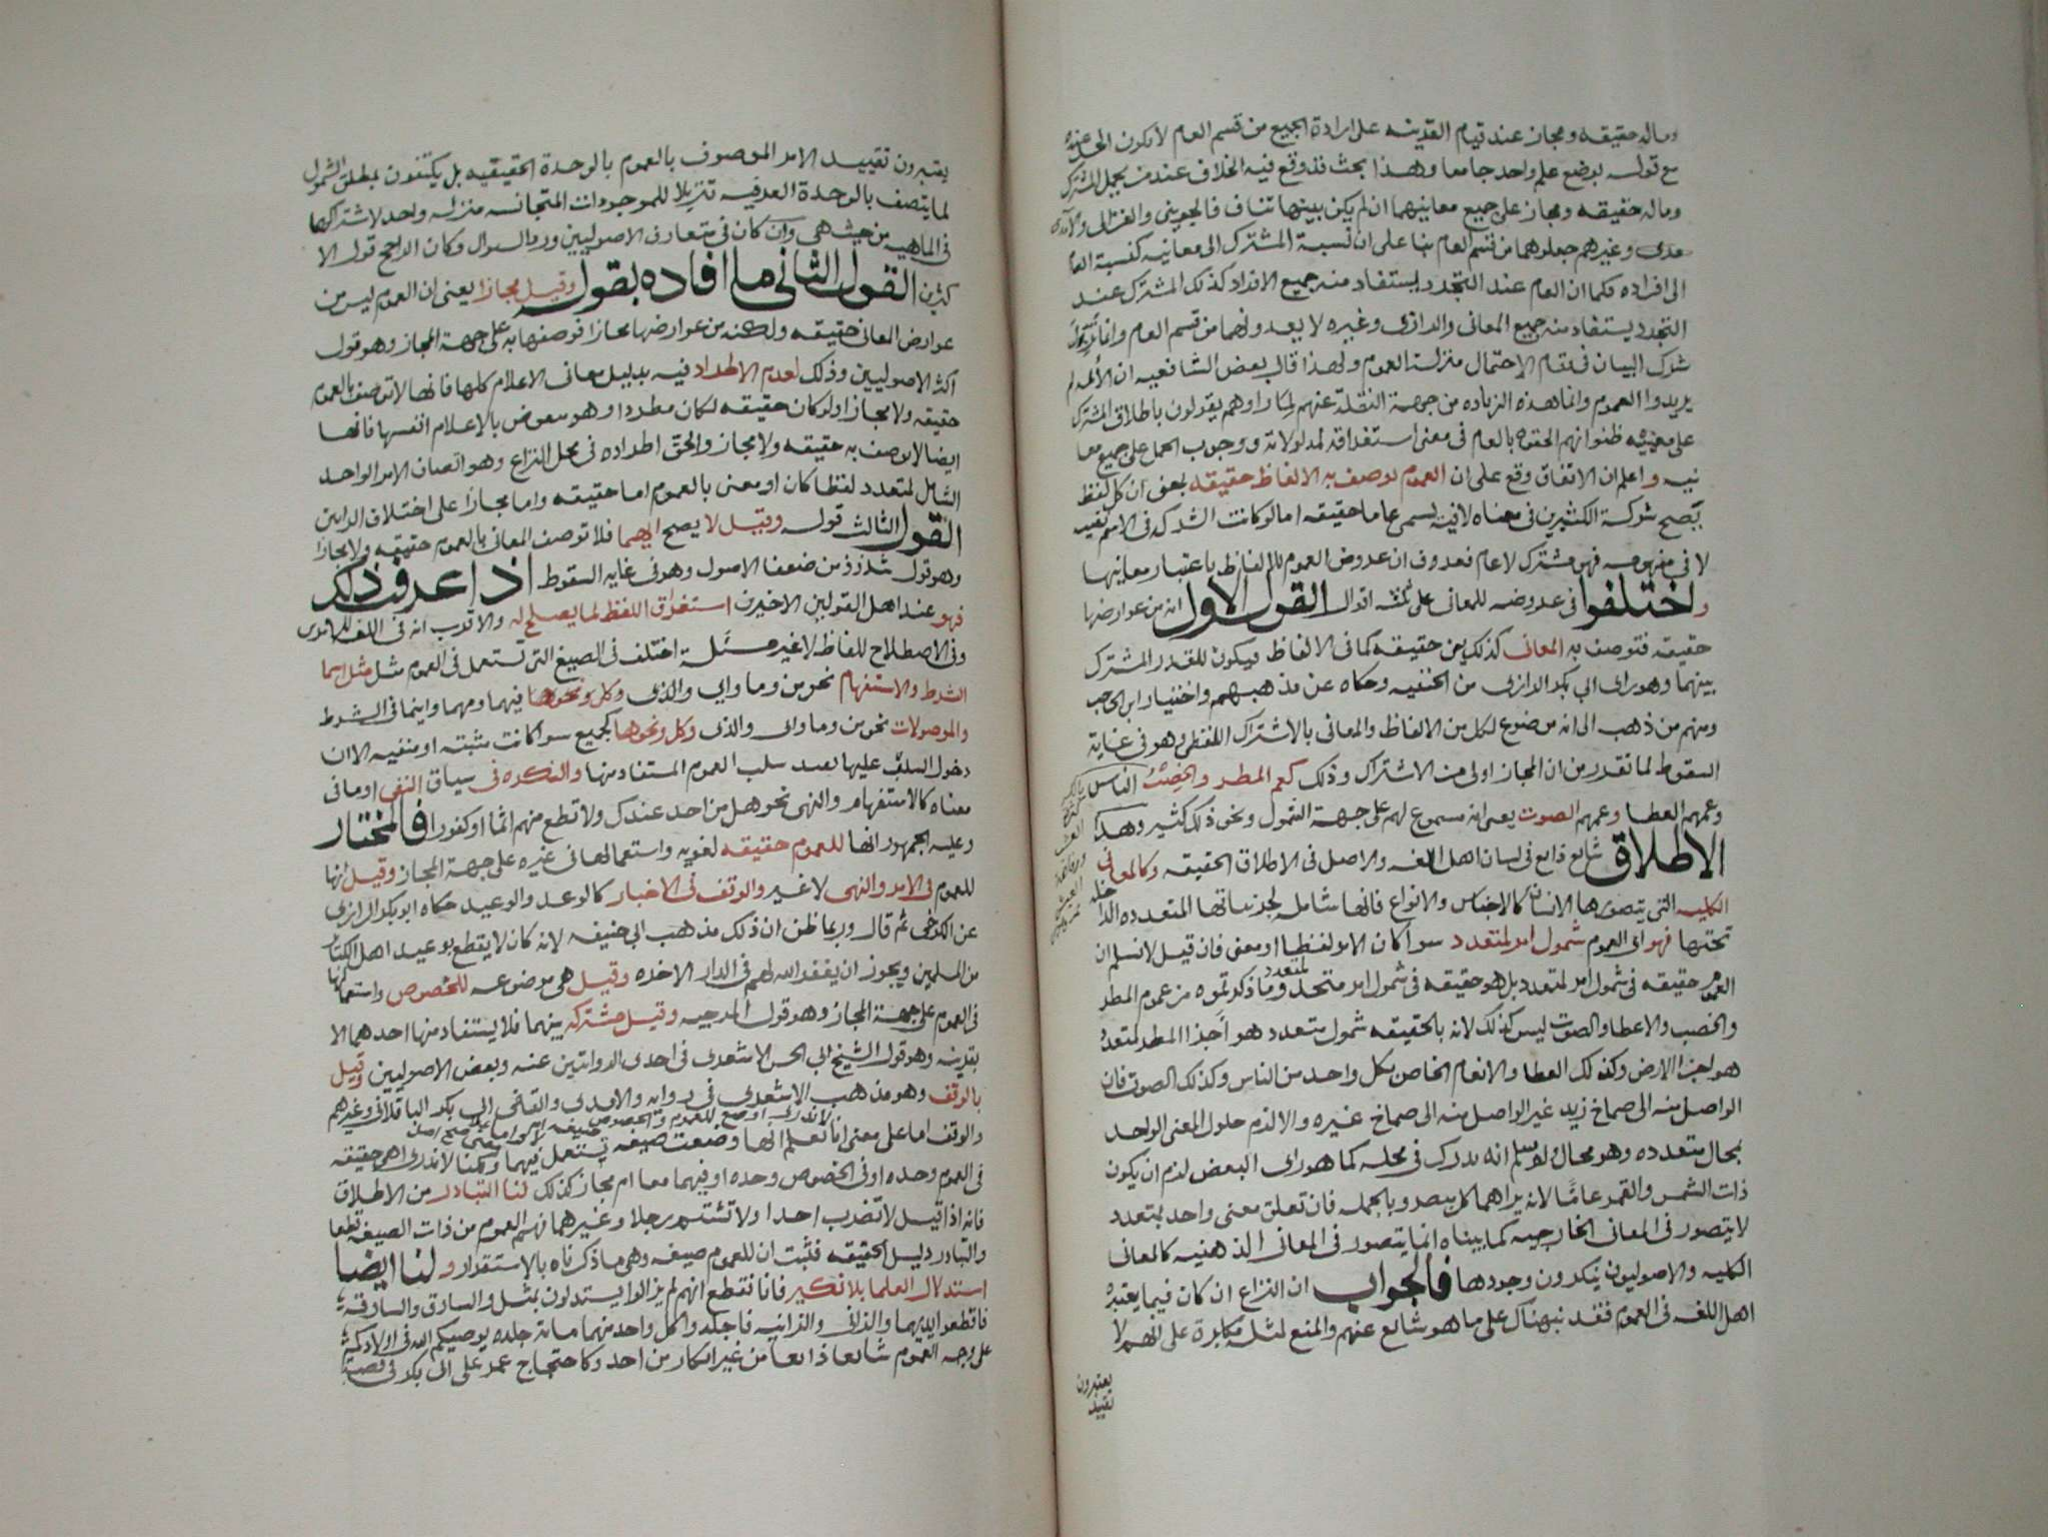 وماله حقيقه ومجاز عند قيام القرينه على ارادة الجميع من قسم العام لا يكون الحد عنده
مع قوله بوضع علم واحد جامعا وهذا بحث قد وقع فيه الخلاف عند من يحمل المشترك
وماله حقيقه ومجاز على جميع معانيهما ان لم يكن بينها تناف فالجويني والغزالي والآ
مدى وغيرهم جعلوهما من قسم العام بنا على ان نسبة المشترك الى معانيه كنسبة العام
الى افراده فكما ان العام عند التجرد يستفاد منه جميع الافراد كذلك المشترك عند
التجرد يستفاد منه جميع المعانى والرازى وغيره لا يعدونهما من قسم العام وانما
شرك البيان فى مقام الاحتمال منزلة العموم ولهذا قال بعض الشافعيه ان الأئمه لم
يريدوا العموم وانما هذه الزياده من جهة النقلة عنهم لما راوهم يقولون باطلاق المشترك
على معنييه ظنوا انهم الحقوه بالعام فى معنى استغراقه لمدلولاته ووجوب الحمل على جميع معا
نيه واعلم ان الاتفاق وقع على ان العموم يوصف به الالفاظ حقيقه بمعنى ان كل لفظ
يصح شركة الكثيرين فى معناه لا فيه يسمى عاما حقيقه اما لو كانت الشركه فى الاسم نفسه
لا فى مفهومه فهو مشترك لا عام فعروف ان عروض العموم للالفاظ باعتبار معانيها
واختلفوا فى عروضه للمعانى على ثلثه اقوال القول الاول انه من عوارضها
حقيقه فتوصف به المعانى كذلك من حقيقه كما فى الالفاظ فيكون للقدر المشترك
بينهما وهو راى ابي بكر الرازى من الحنفيه وحكاه عن مذهبهم واختيار ابن الحاجب
ومنهم من ذهب الى انه موضوع لكل من الالفاظ والمعانى بالاشتراك اللفظى وهو فى غاية
السقوط لما تقدر من ان المجاز اولى من الاشتراك وذلك كعم المطر والخصب الناس
وعمهم العطا وعمهم الصوت يعنى انه مسموع لهم على جهة الشمول ونحو ذلك كثير وهذا
الاطلاق شايع ذايع فى لسان اهل اللغه والاصل فى الاطلاق الحقيقه وكالمعانى
الكليه التى يتصورها الانسان كالاجناس والانواع فانها شامله لجزئياتها المتعدده الداخله
تحتها فهو اى العموم شمول امر لمتعدد سوا كان الامر لفظا او معنى فان قيل لا نسلم ان
العموم حقيقه فى شمول امر لمتعدد بل هو حقيقه فى شمول امر متحد لمتعدد وما ذكرتموه من عموم المطر
والخصب والاعطا والصوت ليس كذلك لانه بالحقيقه شمول متعدد هو اجزا المطر لمتعدد
هو اجزا الارض وكذلك العطا والانعام الخاص بكل واحد من الناس وكذلك الصوت فان
الواصل منه الى صماخ زيد غير الواصل منه الى صماخ غيره والا لزم حلول المعنى الواحد
بمحال متعدده وهو محال ولو سلم انه يدرك فى محله كما هو راى البعض لزم ان يكون
ذات الشمس والقمر عامًا لانه يراهما كل مبصر وبالجمله فان تعلق معنى واحد بمتعدد
لا يتصور فى المعانى الخارجيه كما بيناه انما يتصور فى المعانى الذهنيه كالمعانى
الكليه والاصوليون ينكرون وجودها فالجواب ان النزاع ان كان فيما يعتبره
اهل اللغه فى العموم فقد نبهناك على ما هو شايع عنهم والمنع لمثله مكابرة على انهم لا
يعتبرون
تقييد
يعتبرون تقييد الامر الموصوف بالعموم بالوحدة الحقيقيه بل يكتفون بمطلق الشمول
لما يتصف بالوحدة العرفيه تنزيلا للموجودات المتجانسه منزله واحد لاشتراكها
فى الماهيه من حيث هى وان كان فى متعارف الاصوليين ورد السوال وكان الراجح قول الا
كثرين القول الثانى ما افاده بقول وقيل مجازا يعنى ان العموم ليس من
عوارض المعانى حقيقه ولكنه من عوارضها مجازا فوصفها به على جهة المجاز وهو قول
اكثر الاصوليين وذلك لعدم الاطراد فيه بدليل معانى الاعلام كلها فانها لا توصف بالعموم
حقيقه ولا مجازا ولو كان حقيقه لكان مطردا وهو معوض بالاعلام انفسها فانها
ايضا لا يوصف به حقيقه ولا مجاز والحق اطراده فى محل النزاع وهو اتصاف الامر الواحد
الشامل لمتعدد لفظا كان او معنى بالعموم اما حقيقه واما مجازا على اختلاف الرايين
القول الثالث قوله وقيل لا يصح ايهما فلا توصف المعانى بالعموم حقيقه ولا مجازا
وهو قول شذوذ من ضعفا الاصول وهو فى غايه السقوط اذا عرفت ذلك
فهو عند اهل القولين الاخيرين استغراق اللفظ لما يصلح له والاقرب انه فى اللغه
وفى الاصطلاح للفاظ لا غير مسئلة اختلف فى الصيغ التى تستعمل فى العموم مثل مثل اسما
الشرط والاستفهام نحو من وما واي والذى وكل ونحوها فيهما ومهما واينما فى الشرط
والموصولات نحو من وما واى والذى وكل ونحوها كجميع سوا كانت مثبته او منفيه الا ان
دخول السلب عليها يفيد سلب العموم المستفاد منها والنكره فى سياق النفى او ما فى
معناه كالاستفهام والنهى نحو هل من احد عندك ولا تطع منهم اثما او كفورا فالمختار
وعليه الجمهور انها للعموم حقيقه لغويه واستعمالها فى غيره على جهة المجاز وقيل انها
للعموم فى الامر والنهى لا غير والوقف فى الاخبار كالوعد والوعيد حكاه ابو بكر الرازى
عن الكرخى ثم قال وربما ظن ان ذلك مذهب ابى حنيفه لانه كان لا يقطع بوعيد اهل الكبائر
من المسلمين ويجوز ان يغفر الله لهم فى الدار الاخره وقيل هى موضوعه للخصوص واستعمالها
فى العموم على جهة المجاز وهو قول المرجيه وقيل مشتركه بينهما فلا يستفاد منها احدهما الا
بقرينه وهو قول الشيخ ابي الحسن الاشعرى فى احدى الروايتين عنه وبعض الاصوليين وقيل
بالوقف وهو مذهب الاشعرى فى روايه والامدى والقاضى ابى بكر الباقلانى وغيرهم
والوقف اما على معنى انا لا ندرى اوضع للعموم والخصوص صيغه ام لا واما
نعلم انها وضعت صيغه تستعمل فيهما ولكنا لا ندرى اهى حقيقه
فى العموم وحده او فى الخصوص وحده او فيهما معا ام مجاز كذلك لنا التبادر من الاطلاق
فانه اذا قيل لا تضرب احدا ولا تشتم رجلا وغيرهما فهم العموم من ذات الصيغه قطعا
والتبادر دليل الحقيقه فثبت ان للعموم صيغه وهى ما ذكرناه بالاستقرار ولنا ايضا
استدلال العلما بلا نكير فانا نقطع انهم لم يزالوا يستدلون بمثل والسارق والسارقه
فاقطعوا ايديهما والزانى والزانيه فاجلدوا كل واحد منهما مائة جلده يوصيكم الله فى اولادكم
على وجه العموم شايعا ذايعا من غير انكار من احد وكاحتجاج عمر على ابى بكر فى قصة